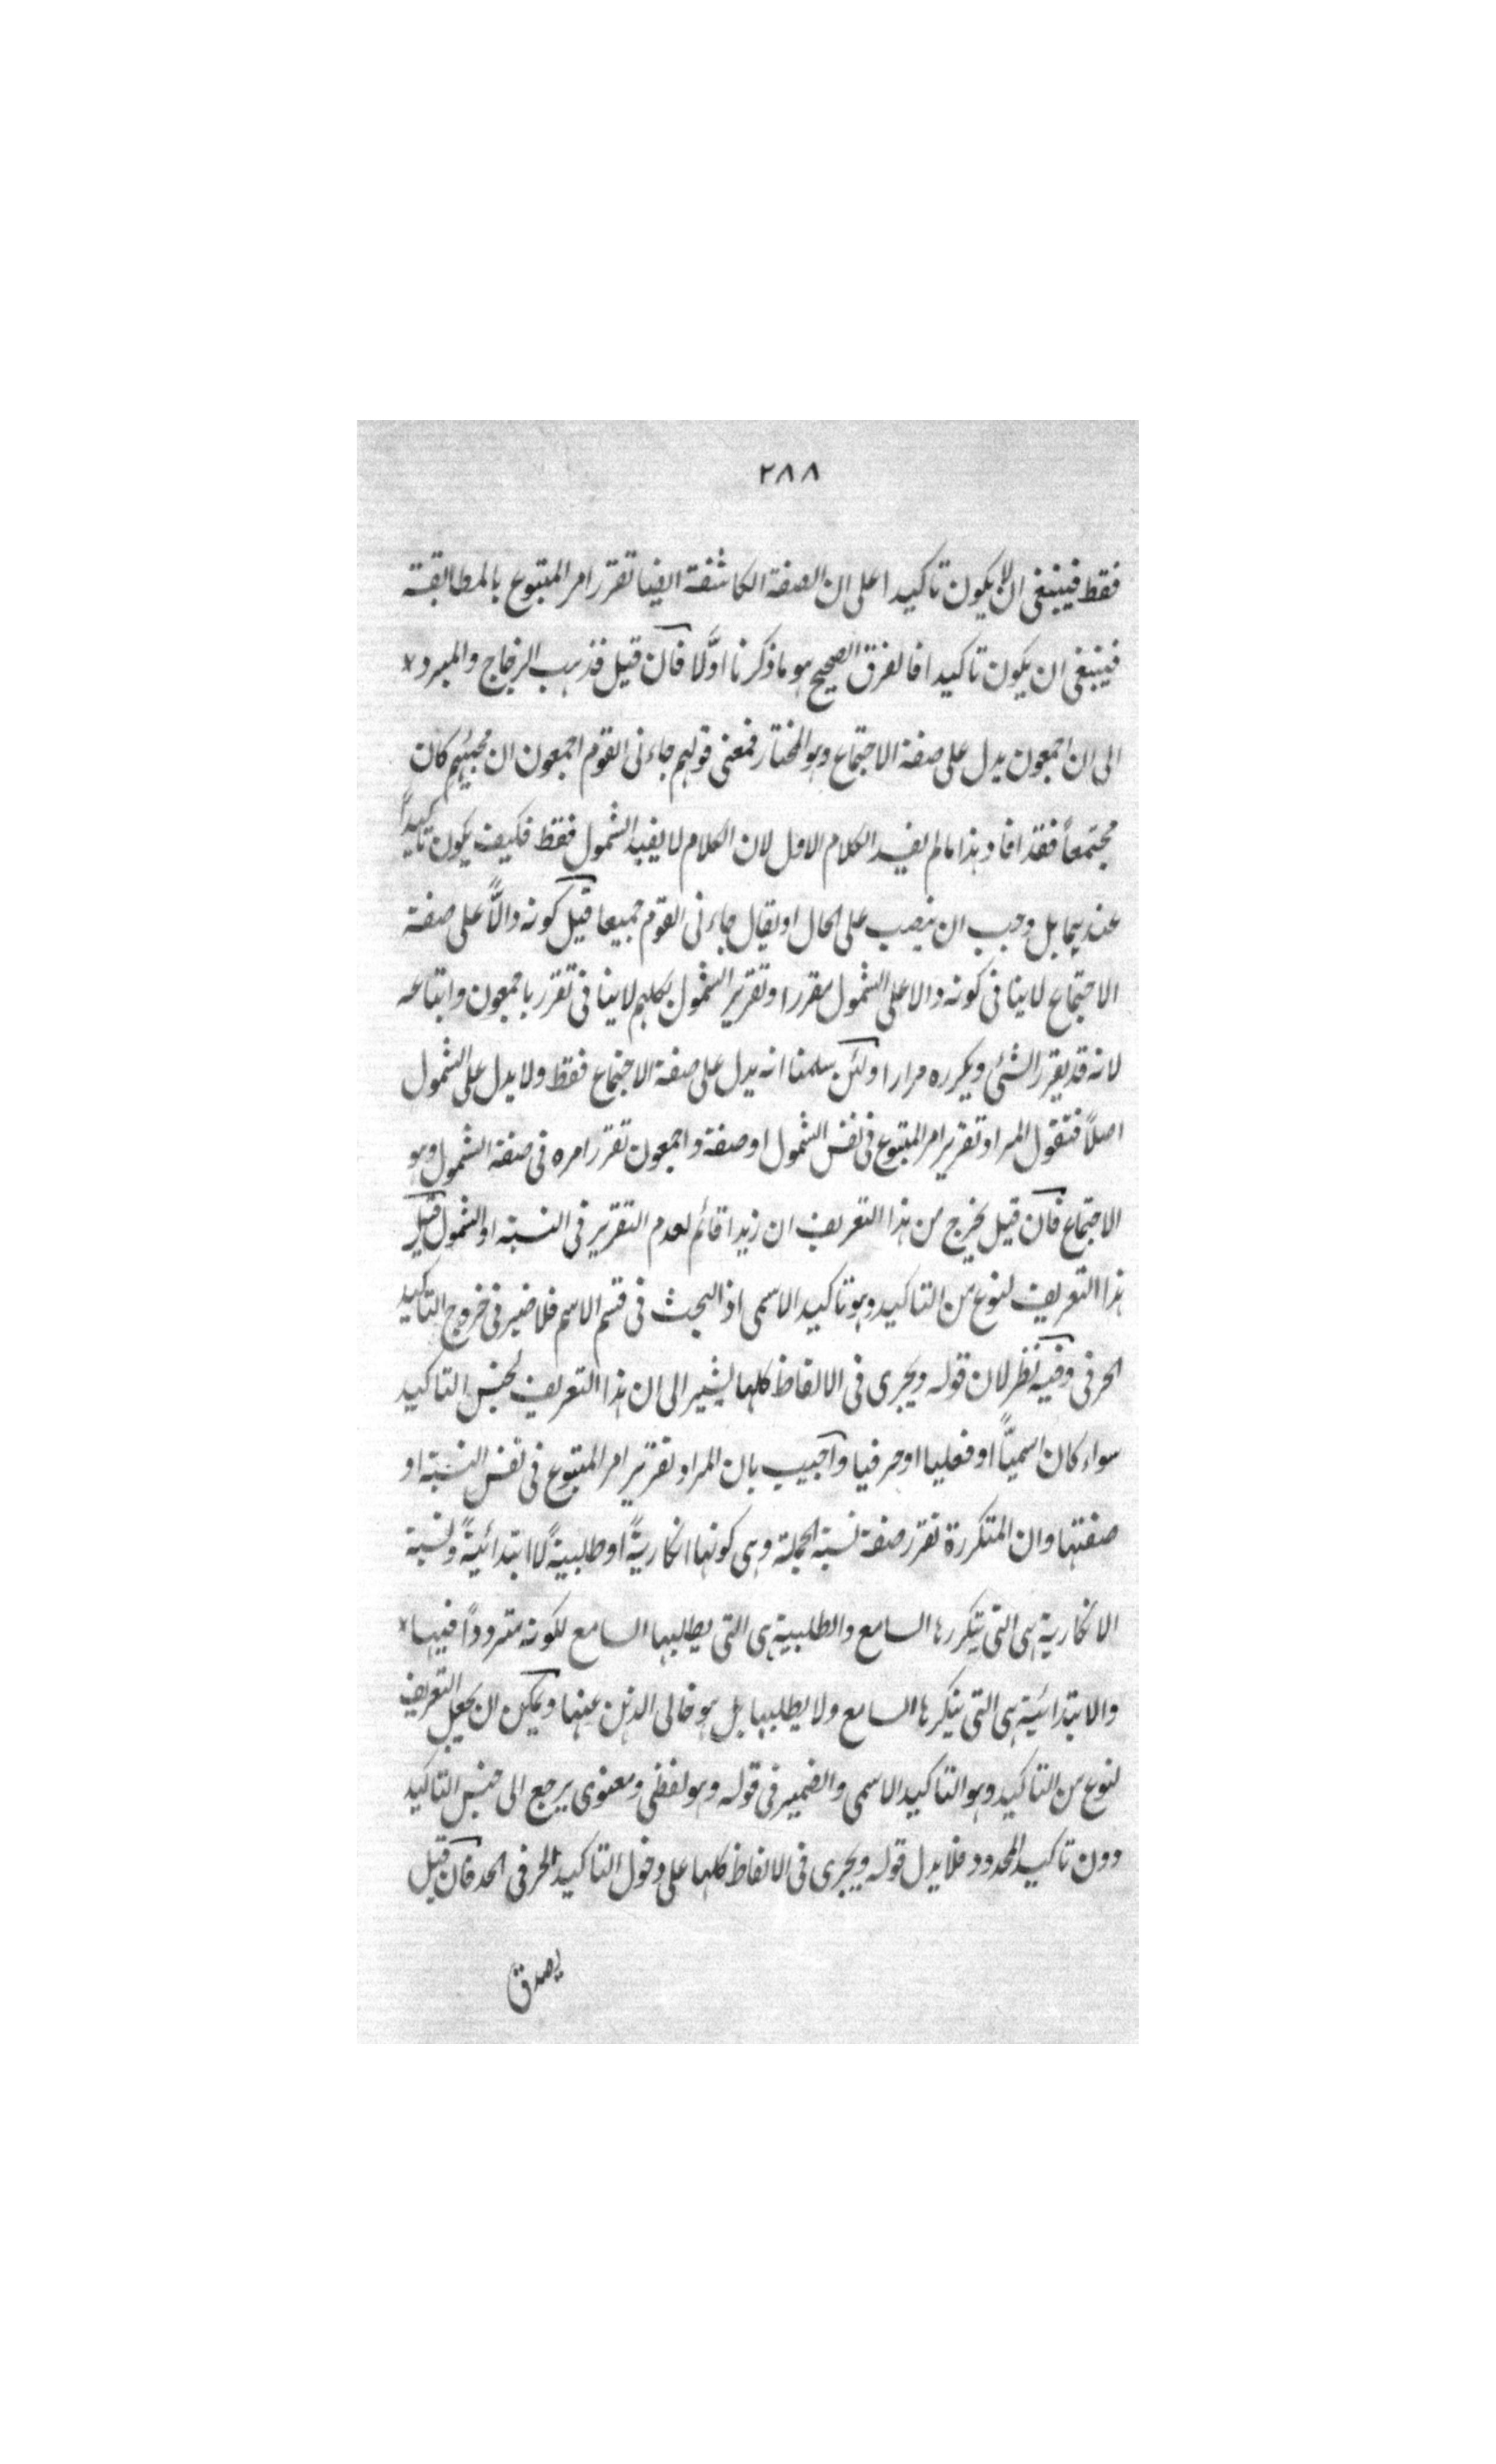 ٢٨٨
فقط فينبغى ان لا يكون تاكيدا على ان الصفة الكاشفة ايضا تقرر امر المتبوع بالمطابقة
فينبغى ان يكون تاكيدا فالفرق الصحيح هو ما ذكرنا اوّلا فان قيل فذهب الزجاج والمبرد
الى ان اجمعون يدل على صفة الاجتماع وهو المختار فمعنى قولهم جاءنى القوم اجمعون ان مجيئهم كان
مجتمعاً فقد افاد هذا مالم يفد الكلام الاول لان الكلام لا يفيد الشمول فقط فكيف يكون تاكيداً
عندهما بل وجب ان ينصب على الحال او يقال جاءنى القوم جميعا قيل كونه دالاًّ على صفة
الاجتماع لا ينافى كونه دالا على الشمول مقررا وتقرير الشمول بكلهم لا ينافى تقرر باجمعون واتباعه
لانه قد يقرر الشئ ويكرره مرارا ولئن سلمنا انه يدل على صفة الاجتماع فقط ولا يدل على الشمول
اصلاً فنقول المراد تقرير امر المتبوع فى نفس الشمول او صفة واجمعون تقرر امره فى صفة الشمول وهو
الاجتماع فان قيل يخرج من هذا التعريف ان زيدا قائم لعدم التقرير فى النسبة او الشمول قيل
هذا التعريف لنوع من التاكيد وهو تاكيد الاسمى اذ البحث فى قسم الاسم فلا ضير فى خروج التاكيد
الحرفى وفيه نظر لان قوله ويجرى فى الالفاظ كلها يشير الى ان هذا التعريف لجنس التاكيد
سواء كان اسميًّا او فعليا او حرفيا واجيب بان المراد تقرير امر المتبوع فى نفس النسبة او
صفتها وان المتكررة تقرر صفة نسبة الجملة وهى كونها انكاريةً او طلبيةً لا ابتدائيةً ونسبة
الانكارية هى التى يتكررها السامع والطلبية هى التى يطلبها السامع لكونه مترددًا فيها
والابتدائية هى التى ينكرها السامع ولا يطلبها بل هو خالى الذهن عنها ويمكن ان يجعل التعريف
لنوع من التاكيد وهو التاكيد الاسمى والضمير فى قوله وهو لفظى ومعنوى يرجع الى جنس التاكيد
دون تاكيد المحدود فلا يدل قوله ويجرى فى الالفاظ كلها على دخول التاكيد الحرفى الحد فان قيل
يصدق